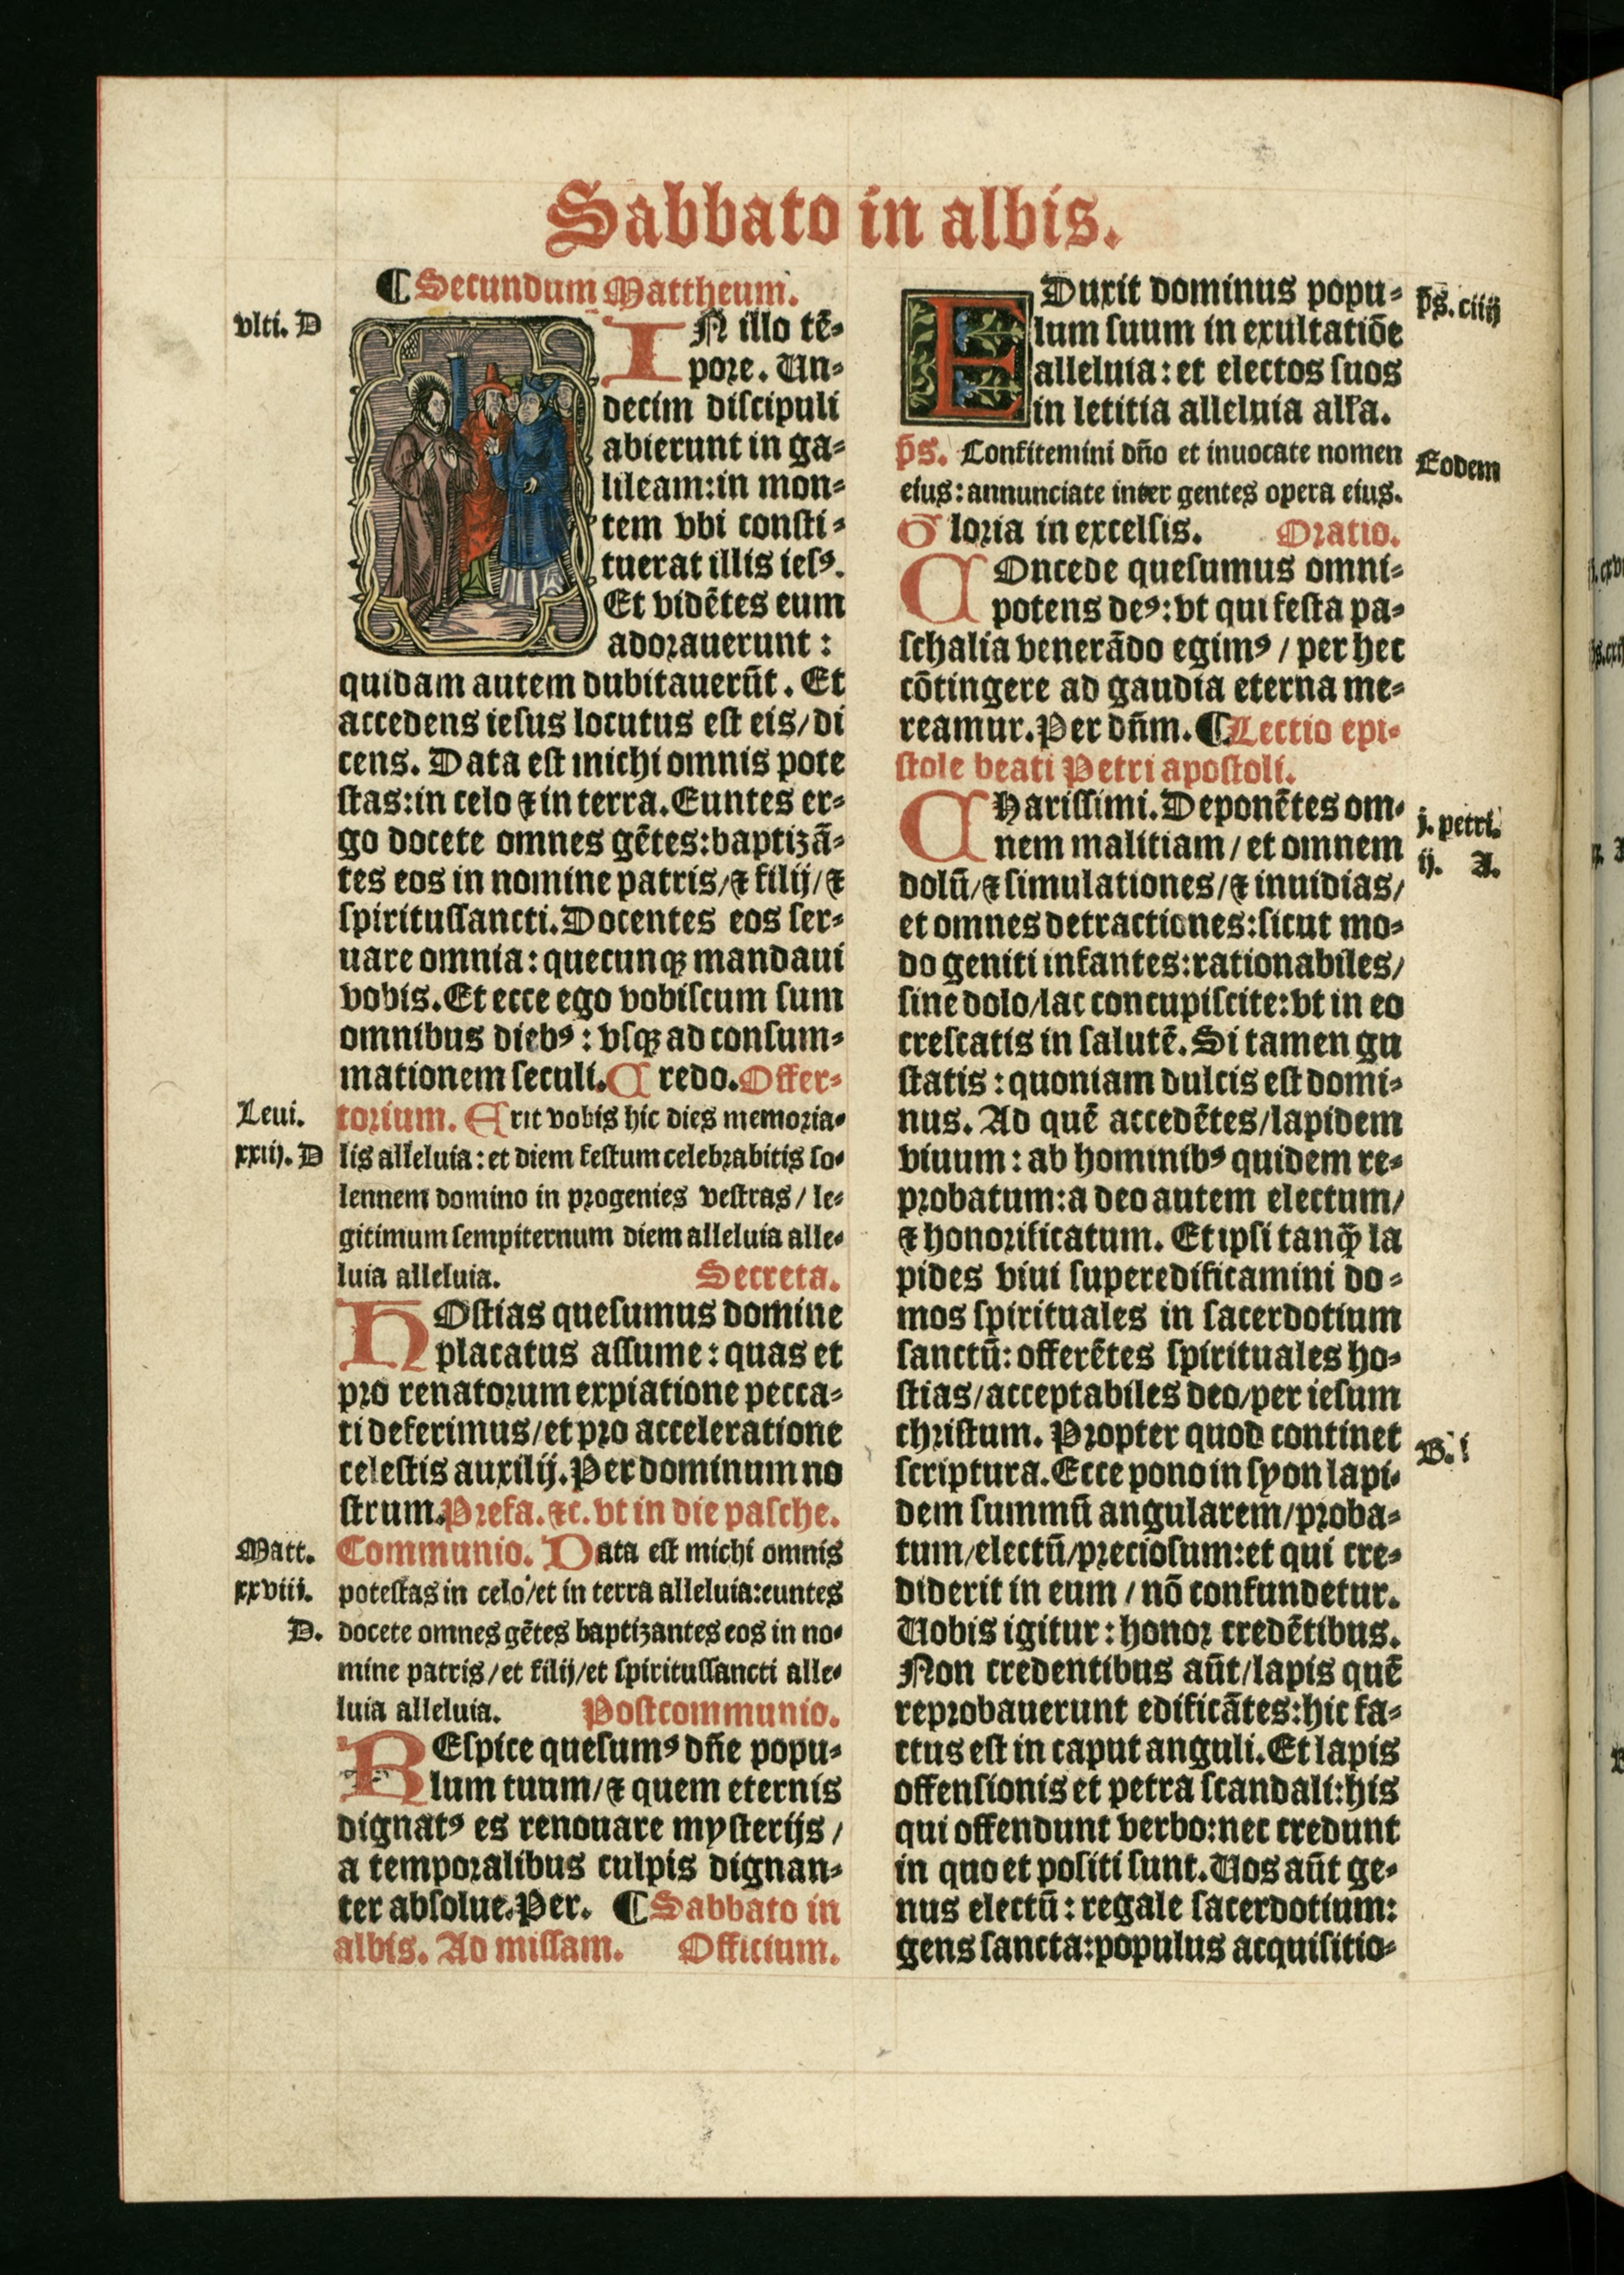 Sabbato in albis.
¶ Secundum Mattheum.
vlti. D
IN illo tē⸗
pore. Un⸗
decim discipuli
abierunt in ga⸗
lileam: in mon⸗
tem vbi consti⸗
tuerat illis iesꝰ.
Et vidētes eum
adorauerunt:
quidam autem dubitauerūt. Et
accedens iesus locutus est eis/di
cens. Data est michi omnis pote
stas: in celo ⁊ in terra. Euntes er⸗
go docete omnes gētes: baptizā⸗
tes eos in nomine patris/⁊ filij/⁊
spiritussancti. Docentes eos ser⸗
uare omnia: quecunqꝫ mandaui
vobis. Et ecce ego vobiscum sum
omnibus diebꝰ: vsqꝫ ad consum⸗
mationem seculi. Credo. Offer⸗
Leui.
torium. Erit vobis hic dies memoria⸗
xxiij. D
lis alleluia: et diem festum celebrabitis so⸗
lennem domino in progenies vestras/ le⸗
gitimum sempiternum diem alleluia alle⸗
luia alleluia. Secreta.
HOstias quesumus domine
placatus assume: quas et
pro renatorum expiatione pecca⸗
ti deferimus/et pro acceleratione
celestis auxilij. Per dominum no
strum. Prefa. ⁊c. vt in die pasche.
Matt.
Communio. Data est michi omnis
xxviii.
potestas in celo/et in terra alleluia: euntes
D.
docete omnes gētes baptizantes eos in no⸗
mine patris/et filij/et spiritussancti alle⸗
luia alleluia. Postcommunio.
REspice quesumꝰ dn̄e popu⸗
lum tuum/⁊ quem eternis
dignatꝰ es renouare mysterijs/
a temporalibus culpis dignan⸗
ter absolue. Per. ¶ Sabbato in
albis. Ad missam. Officium.
EDuxit dominus popu⸗
p̄s. ciiij
lum suum in exultatiōe
alleluia: et electos suos
in letitia alleluia all̄a.
p̄s. Confitemini dn̄o et inuocate nomen
Eodem
eius: annunciate inter gentes opera eius.
Gloria in excelsis. Oratio.
COncede quesumus omni⸗
potens deꝰ: vt qui festa pa⸗
schalia venerādo egimꝰ/ per hec
cōtingere ad gaudia eterna me⸗
reamur. Per dn̄m. ¶ Lectio epi⸗
stole beati Petri apostoli.
CHarissimi. Deponētes om⸗
j. petri.
nem malitiam/ et omnem
ij. A.
dolū/⁊ simulationes/⁊ inuidias/
et omnes detractiones: sicut mo⸗
do geniti infantes: rationabiles/
sine dolo/lac concupiscite: vt in eo
crescatis in salutē. Si tamen gu
statis: quoniam dulcis est domi⸗
nus. Ad quē accedētes/lapidem
viuum: ab hominibꝰ quidem re⸗
probatum: a deo autem electum/
⁊ honorificatum. Et ipsi tanq̄ la
pides viui superedificamini do⸗
mos spirituales in sacerdotium
sanctū: offerētes spirituales ho⸗
stias/acceptabiles deo/per iesum
christum. Propter quod continet
B.
scriptura. Ecce pono in syon lapi⸗
dem summū angularem/proba⸗
tum/electū/preciosum: et qui cre⸗
diderit in eum/ nō confundetur.
Uobis igitur: honor credētibus.
Non credentibus aūt/lapis quē
reprobauerunt edificātes: hic fa⸗
ctus est in caput anguli. Et lapis
offensionis et petra scandali: his
qui offendunt verbo: nec credunt
in quo et positi sunt. Uos aūt ge⸗
nus electū: regale sacerdotium:
gens sancta: populus acquisitio⸗